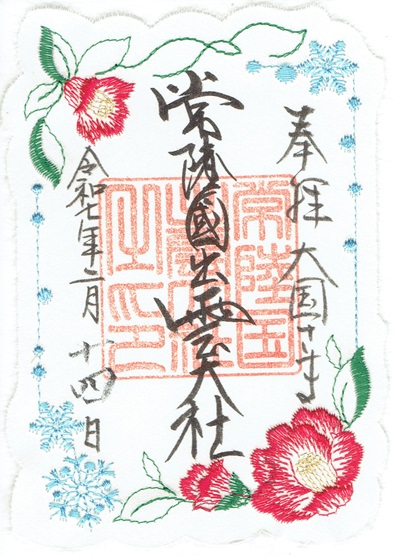 奉拝 大国さま
常陸國出雲大社
令和七年二月十四日
常陸国
出雲大社
之印